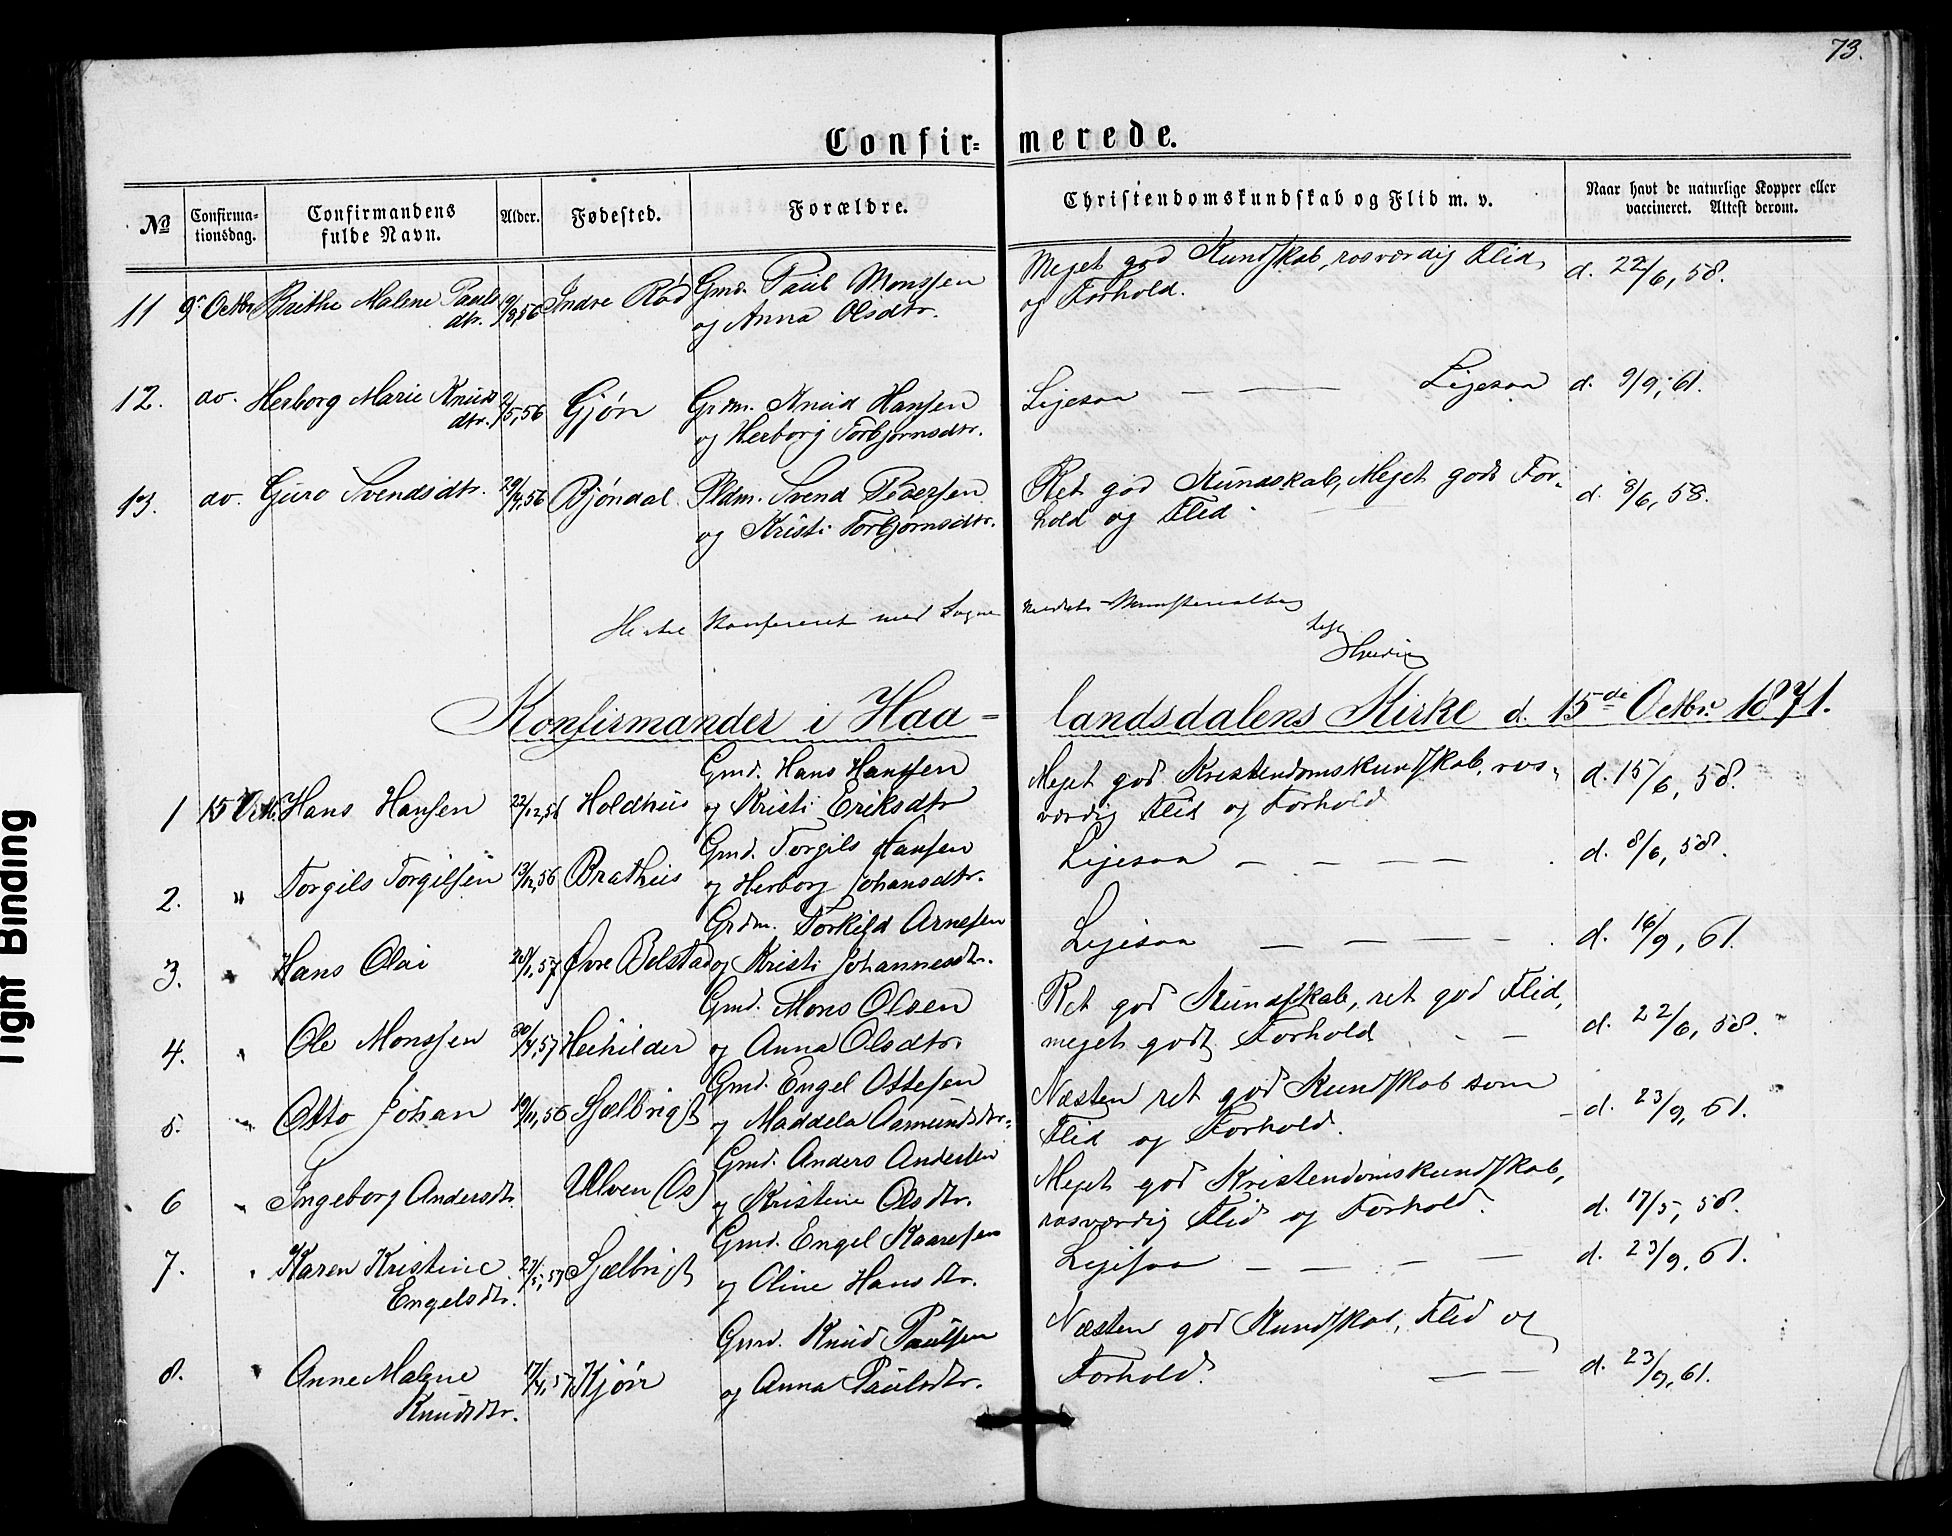 73.
Confir- merede.
No
Confirma-
tionsdag.
Confirmandens
fulde Navn.
Alder.
Fødested.
Forældre.
Christendomskundskab og Flid m. v.
Naar havt de naturlige Kopper eller
vaccineret. Attest derom.
11 9de Octbr Brithe Malene Pauls
dtr. 9/8,56 Indre Röd Gmd. Paul Monssen
og Anna Olsdtr. Meget god Kundskab, rosværdig Flid
og Forhold. d. 22/6, 58.
12. do. Herborg Marie Knuds
dtr. 2/5,56 Gjön Grdm. Knud Hansen
og Herborg Torbjørnsdtr. Ligesaa — — Ligesaa d. 9/9, 61.
13. do. Guro Svendsdtr. 29/4,56 Bjöndal Pldm. Svend Pedersen
og Kristi Torbjørnsdtr. Ret god Kundskab, Meget godt For-
hold og Flid. d. 8/6, 58.
konfereret med Sogne
Konfirmander i Haa- landsdalens Kirke d. 15de Octbr. 1871.
1 15 Octb. Hans Hansen 22/12,56 Holdhus Gmd. Hans Hanssen
og Kristi Eriksdtr Meget god Kristendomskundskab, ros-
værdig Flid og Forhold d. 15/6, 58.
2. " Torgils Torgilsen 13/12,56 Brathus Gmd. Torgils Hansen
og Herborg Johansdtr. Ligesaa — — — — d. 8/6, 58.
3. " Hans Olai 28/1,57 Øvre Bolstad Grdm. Torkild Arnesen
og Kristi Johannesdtr. Ligesaa — — — — d. 16/9, 61.
4. " Ole Monssen 30/4,57 Heihilder Gmd. Mons Olsen
og Anna Olsdtr. Ret god Kundskab, ret god Flid,
meget godt Forhold d. 22/6, 58.
5. " Otto Johan 19/11,56 Sjælbrigt Gmd. Engel Ottesen
og Maddela Aamundsdtr. Næsten ret god Kundskab som
Flid og Forhold. d. 23/9, 61.
6 " Ingeborg Andersdtr. Ulven (Os) Gmd. Anders Andersen
og Kristine Olsdtr. Meget god Kristendomskundskab,
rosværdig Flid og Forhold. d. 17/5, 58.
7. " Karen Kristine
Engelsdtr. 27/5,57 Sjælbrigt Gmd. Engel Kaaresen
og Oline Hansdtr. Ligesaa — — — — d. 23/9, 61.
8. " Anne Malene
Knudsdtr. 17/4,57 Kjön Gmd. Knud Paulsen
og Anna Paulsdtr. Næsten god Kundskab, Flid og
Forhold. — — d. 23/9, 61.
Tight Binding